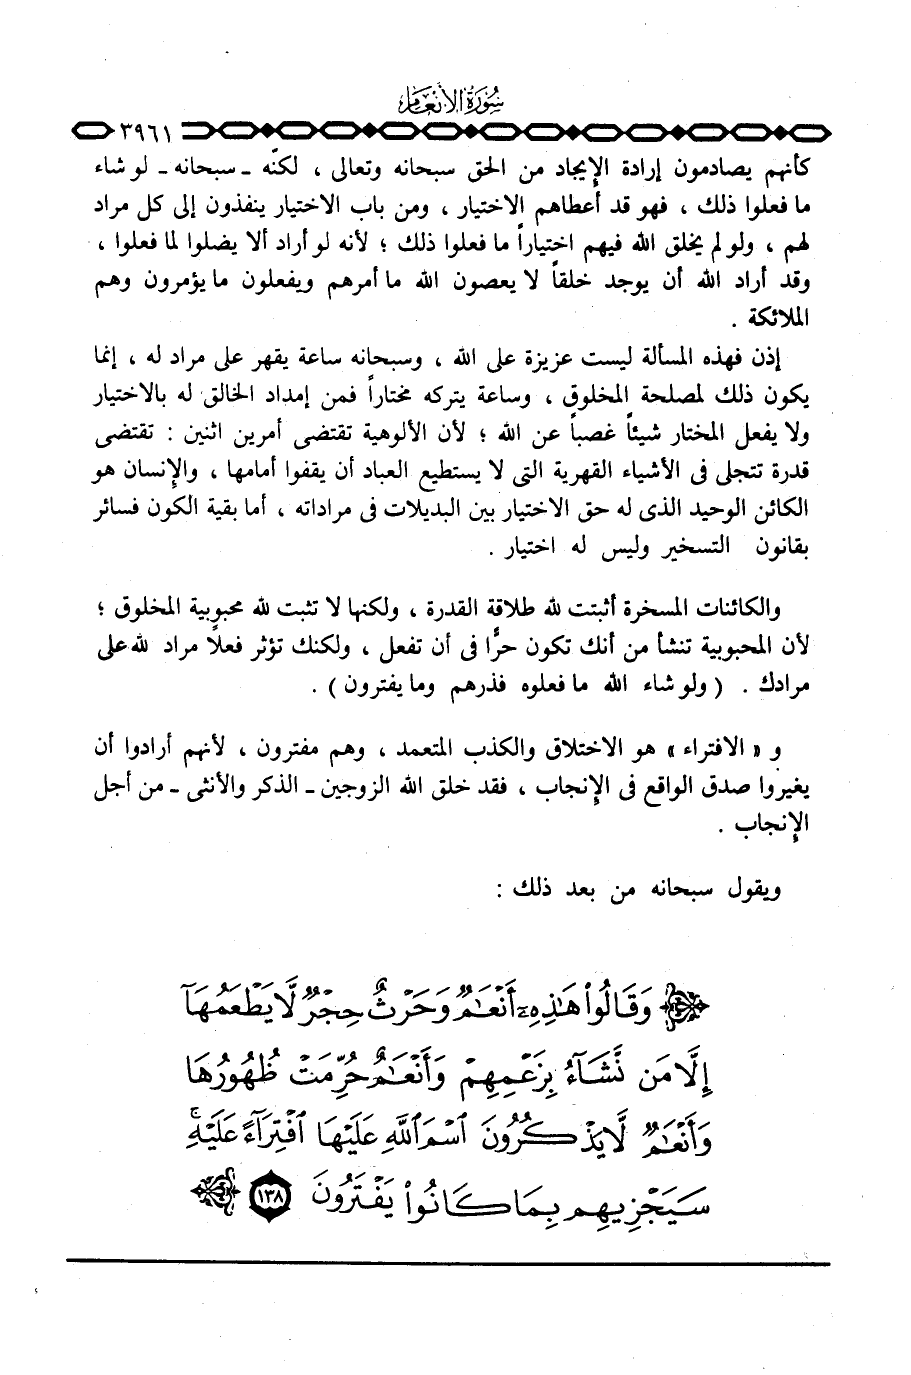 سُورَةُ الأَنْعَامِ
٣٩٦١
كأنهم يصادمون إرادة الإيجاد من الحق سبحانه وتعالى ، لكنَّه ـ سبحانه ـ لو شاء
ما فعلوا ذلك ، فهو قد أعطاهم الاختيار ، ومن باب الاختيار ينفذون إلى كل مراد
لهم ، ولو لم يخلق الله فيهم اختياراً ما فعلوا ذلك ؛ لأنه لو أراد ألا يضلوا لما فعلوا ،
وقد أراد الله أن يوجد خلقاً لا يعصون الله ما أمرهم ويفعلون ما يؤمرون وهم
الملائكة .
إذن فهذه المسألة ليست عزيزة على الله ، وسبحانه ساعة يقهر على مراد له ، إنما
يكون ذلك لمصلحة المخلوق ، وساعة يتركه مختاراً فمن إمداد الخالق له بالاختيار
ولا يفعل المختار شيئاً غصباً عن الله ؛ لأن الألوهية تقتضى أمرين اثنين : تقتضى
قدرة تتجلى فى الأشياء القهرية التى لا يستطيع العباد أن يقفوا أمامها ، والإنسان هو
الكائن الوحيد الذى له حق الاختيار بين البديلات فى مراداته ، أما بقية الكون فسائر
بقانون التسخير وليس له اختيار .
والكائنات المسخرة أثبتت لله طلاقة القدرة ، ولكنها لا تثبت لله محبوبية المخلوق ؛
لأن المحبوبية تنشأ من أنك تكون حرًّا فى أن تفعل ، ولكنك تؤثر فعلاً مراد لله على
مرادك . ( ولو شاء الله ما فعلوه فذرهم وما يفترون ) .
و « الافتراء » هو الاختلاق والكذب المتعمد ، وهم مفترون ، لأنهم أرادوا أن
يغيروا صدق الواقع فى الإنجاب ، فقد خلق الله الزوجين ـ الذكر والأنثى ـ من أجل
الإنجاب .
ويقول سبحانه من بعد ذلك :
وَقَالُوا۟ هَٰذِهِۦٓ أَنْعَٰمٌ وَحَرْثٌ حِجْرٌ لَّا يَطْعَمُهَآ
إِلَّا مَن نَّشَآءُ بِزَعْمِهِمْ وَأَنْعَٰمٌ حُرِّمَتْ ظُهُورُهَا
وَأَنْعَٰمٌ لَّا يَذْكُرُونَ ٱسْمَ ٱللَّهِ عَلَيْهَا ٱفْتِرَآءً عَلَيْهِ ۚ
سَيَجْزِيهِم بِمَا كَانُوا۟ يَفْتَرُونَ ١٣٨